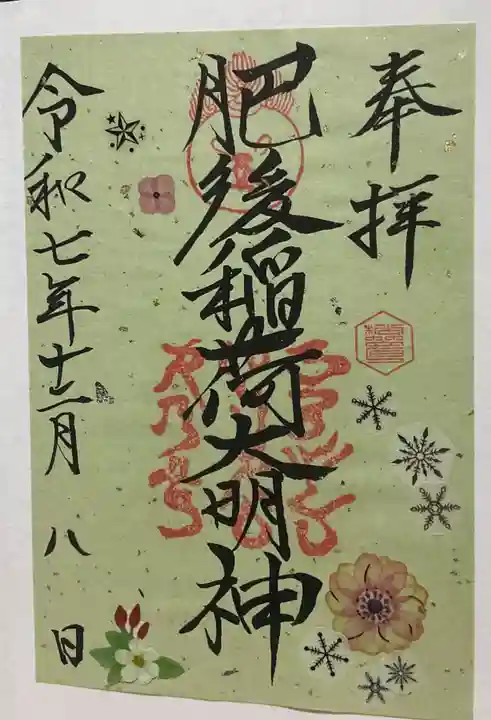 奉拝
肥後稲荷大明神
令和七年十二月八日